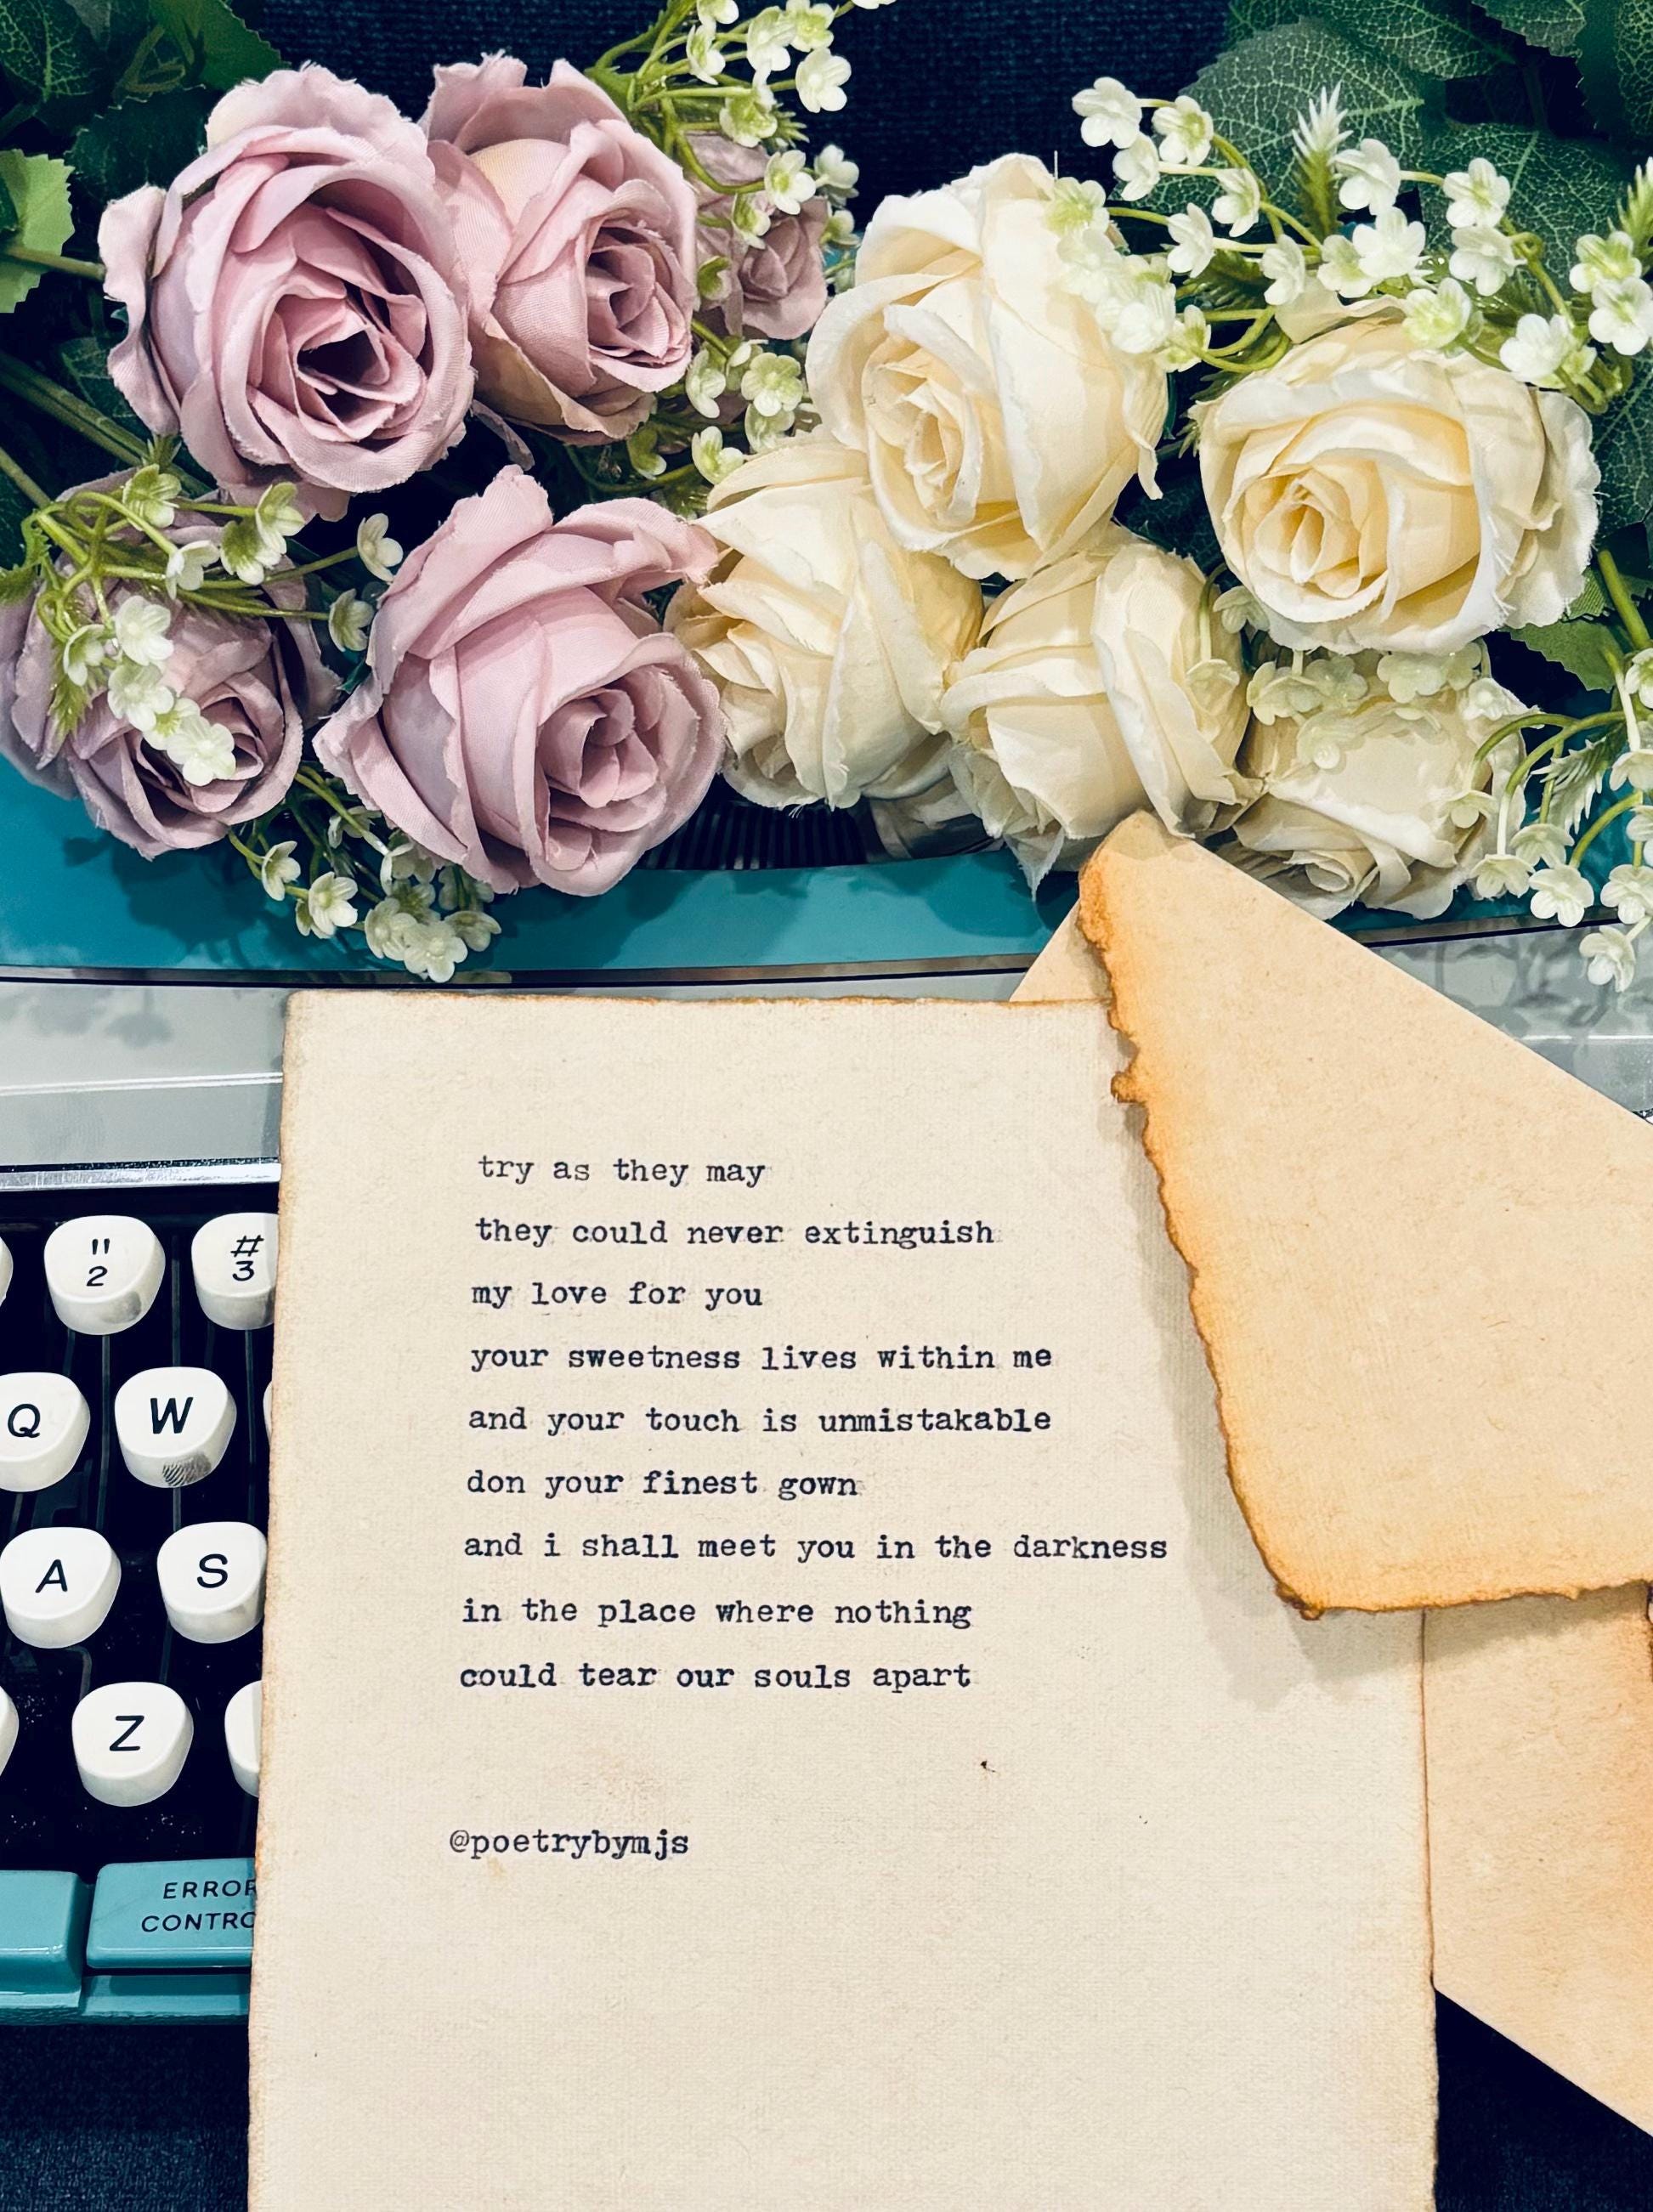 try as they may
they could never extinguish
my love for you
your sweetness lives within me
and your touch is unmistakable
don your finest gown
and i shall meet you in the darkness
in the place where nothing
could tear our souls apart
@poetrybymjs
" #
2 3
Q W
A S
Z
ERROR